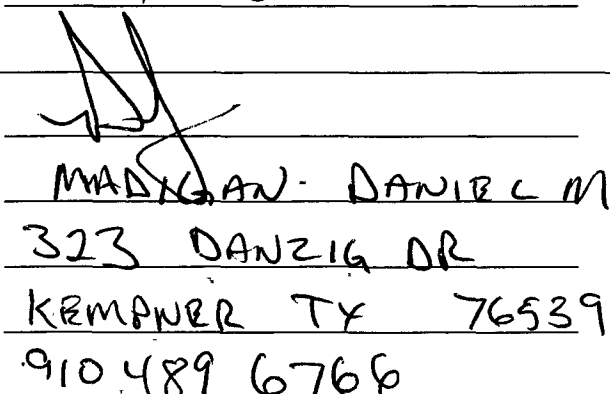 MADIGAN. DANIEL M
323 DANZIG DR
KEMPNER TX 76539
910 489 6766